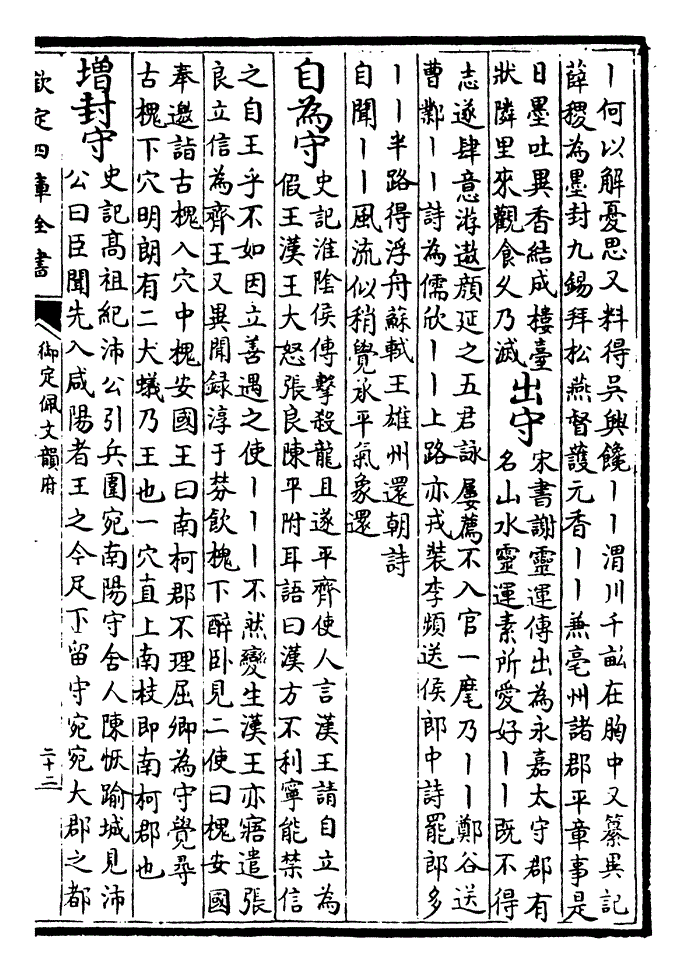 丨何以解憂思又料得吳興饞丨丨渭川千畝在胸中又纂異記
薛稷為墨封九錫拜松燕督護元香丨丨兼亳州諸郡平章事是
日墨吐異香結成樓臺
狀隣里來觀食久乃滅
出守
宋書謝靈運傳出為永嘉太守郡有
名山水靈運素所愛好丨丨既不得
志遂肆意游遨顏延之五君詠屢薦不入官一麾乃丨丨鄭谷送
曹鄴丨丨詩為儒欣丨丨上路亦戎裝李頻送侯郎中詩罷郎多
丨丨半路得浮舟蘇軾王雄州還朝詩
自聞丨丨風流似稍覺承平氣象還
自為守
史記淮陰侯傳擊殺龍且遂平齊使人言漢王請自立為
假王漢王大怒張良陳平附耳語曰漢方不利寧能禁信
之自王乎不如因立善遇之使丨丨丨不然變生漢王亦寤遣張
良立信為齊王又異聞録淳于棼飲槐下醉卧見二使曰槐安國
奉邀詣古槐入穴中槐安國王曰南柯郡不理屈卿為守覺尋
古槐下穴明朗有二大蟻乃王也一穴直上南枝即南柯郡也
増封守
史記髙祖紀沛公引兵圍宛南陽守舍人陳恢踰城見沛
公曰臣聞先入咸陽者王之今足下留守宛宛大郡之都
欽定四庫全書
御定佩文韻府
二十二